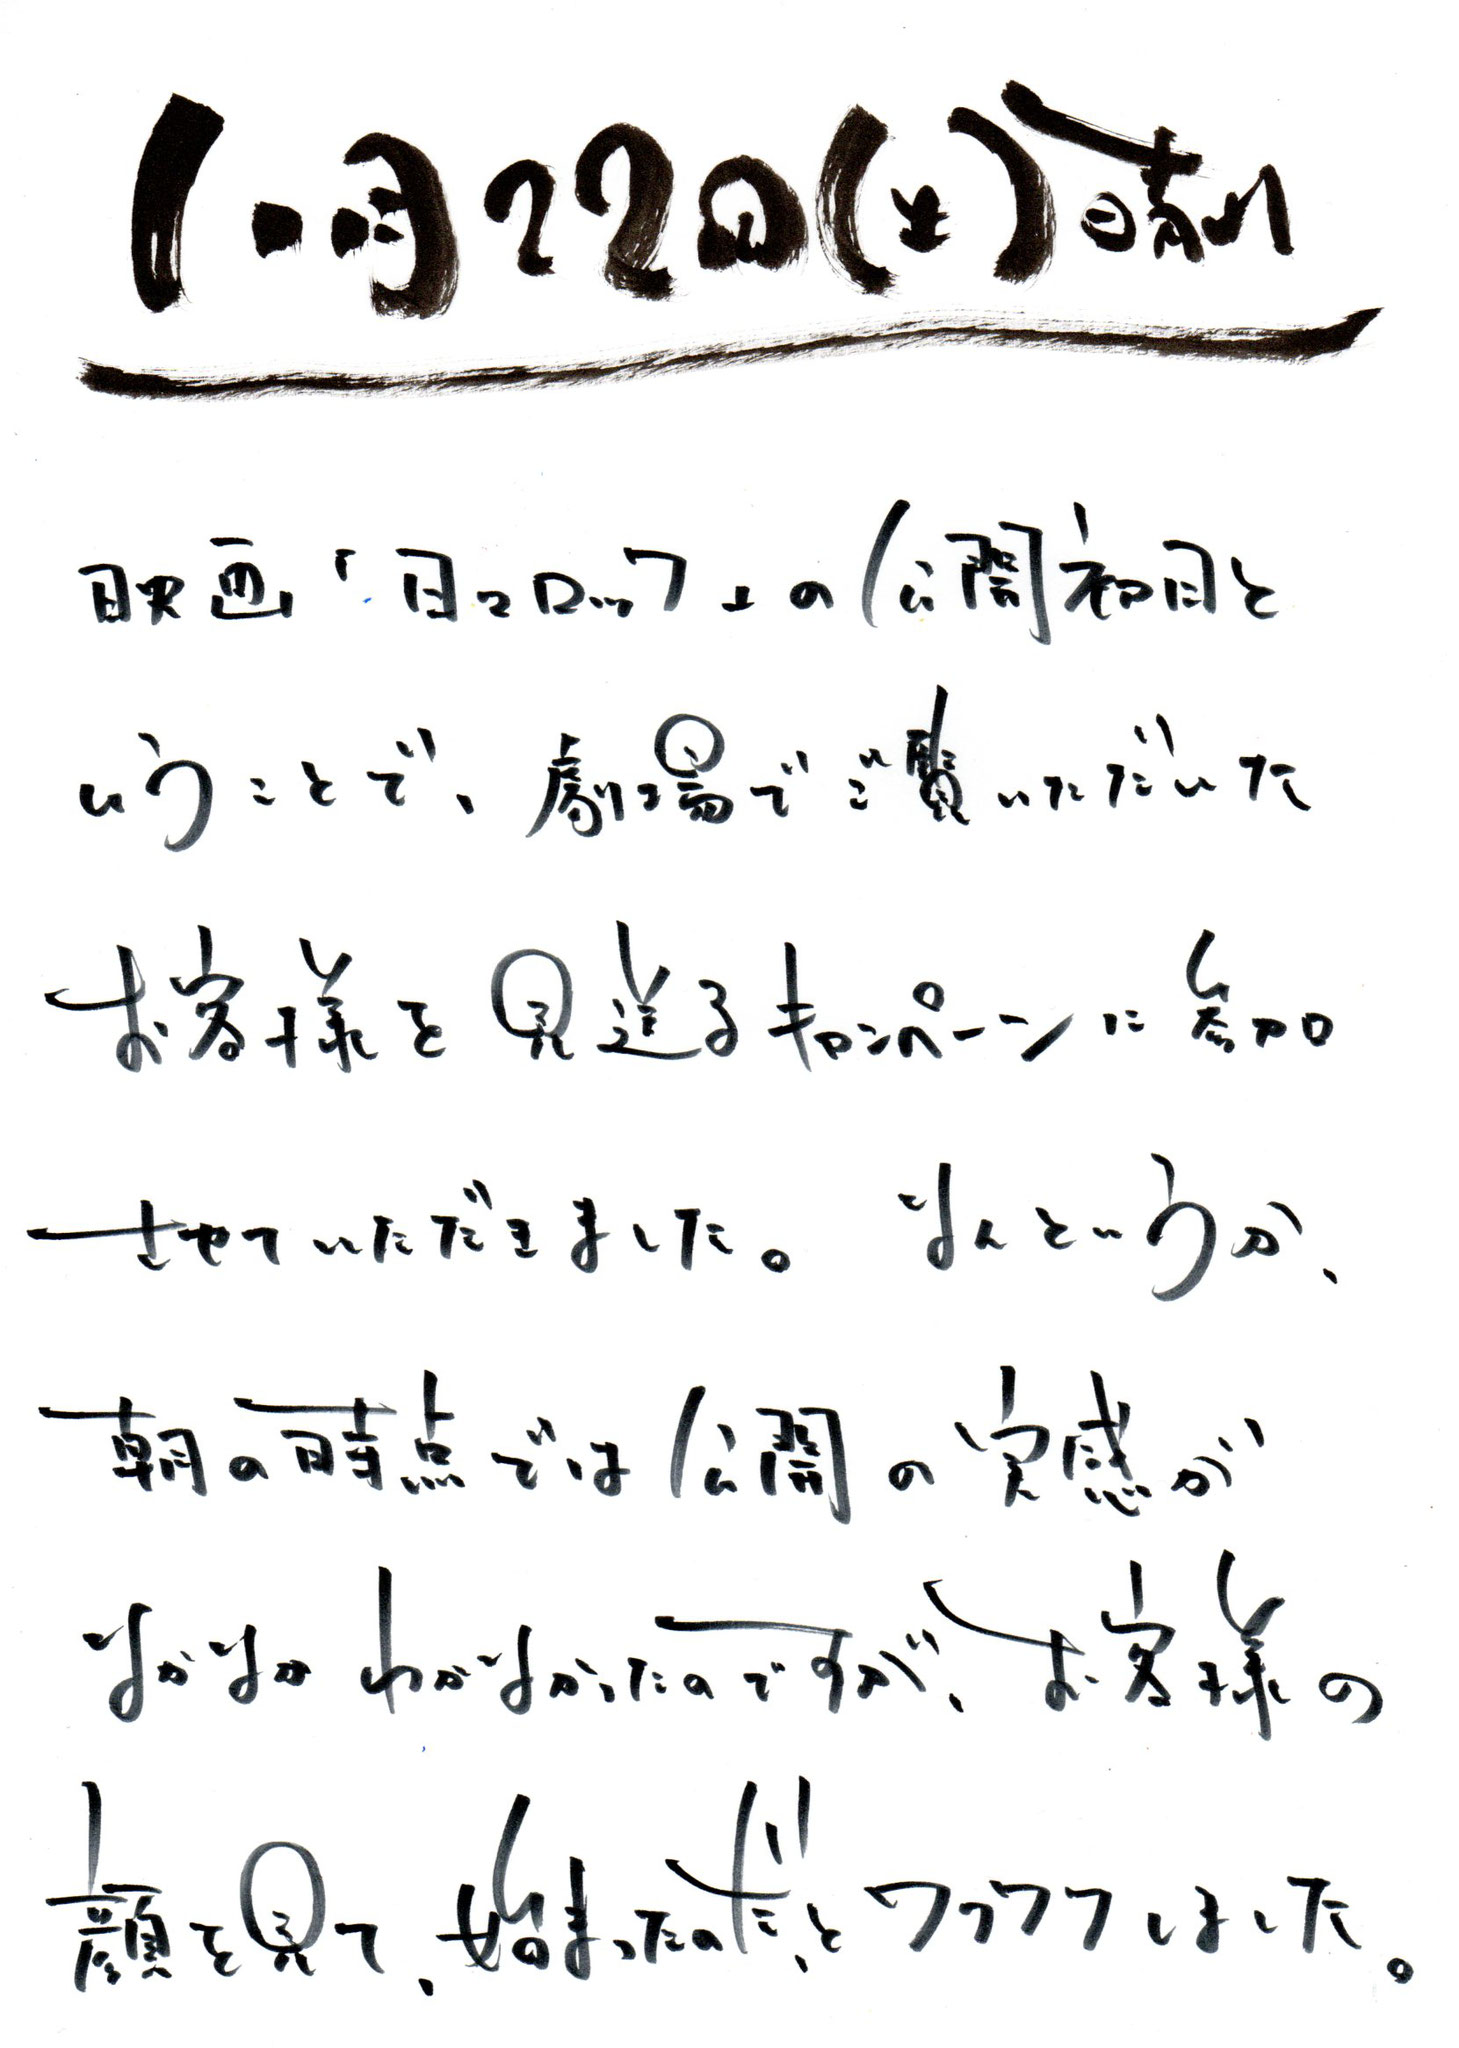 11月22日(土)晴れ
映画「日々ロック」の公開初日と
いうことで、劇場でご覧いただいた
お客様を見送るキャンペーンに参加
させていただきました。 なんというか、
朝の時点では公開の実感が
なかなかわかなかったのですが、お客様の
顔を見て、始まったのだ、とワクワクしました。